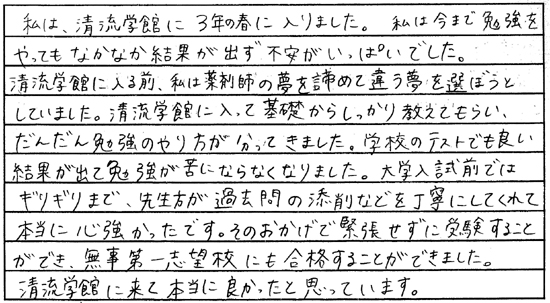 私は、清流学館に3年の春に入りました。私は今まで勉強を
やってもなかなか結果が出ず不安がいっぱいでした。
清流学館に入る前、私は薬剤師の夢を諦めて違う夢を選ぼうと
していました。清流学館に入って基礎からしっかり教えてもらい、
だんだん勉強のやり方が分ってきました。学校のテストでも良い
結果が出て勉強が苦にならなくなりました。大学入試前では
ギリギリまで、先生方が過去問の添削などを丁寧にしてくれて
本当に心強かったです。そのおかげで緊張せずに受験すること
ができ、無事第一志望校にも合格することができました。
清流学館に来て本当に良かったと思っています。